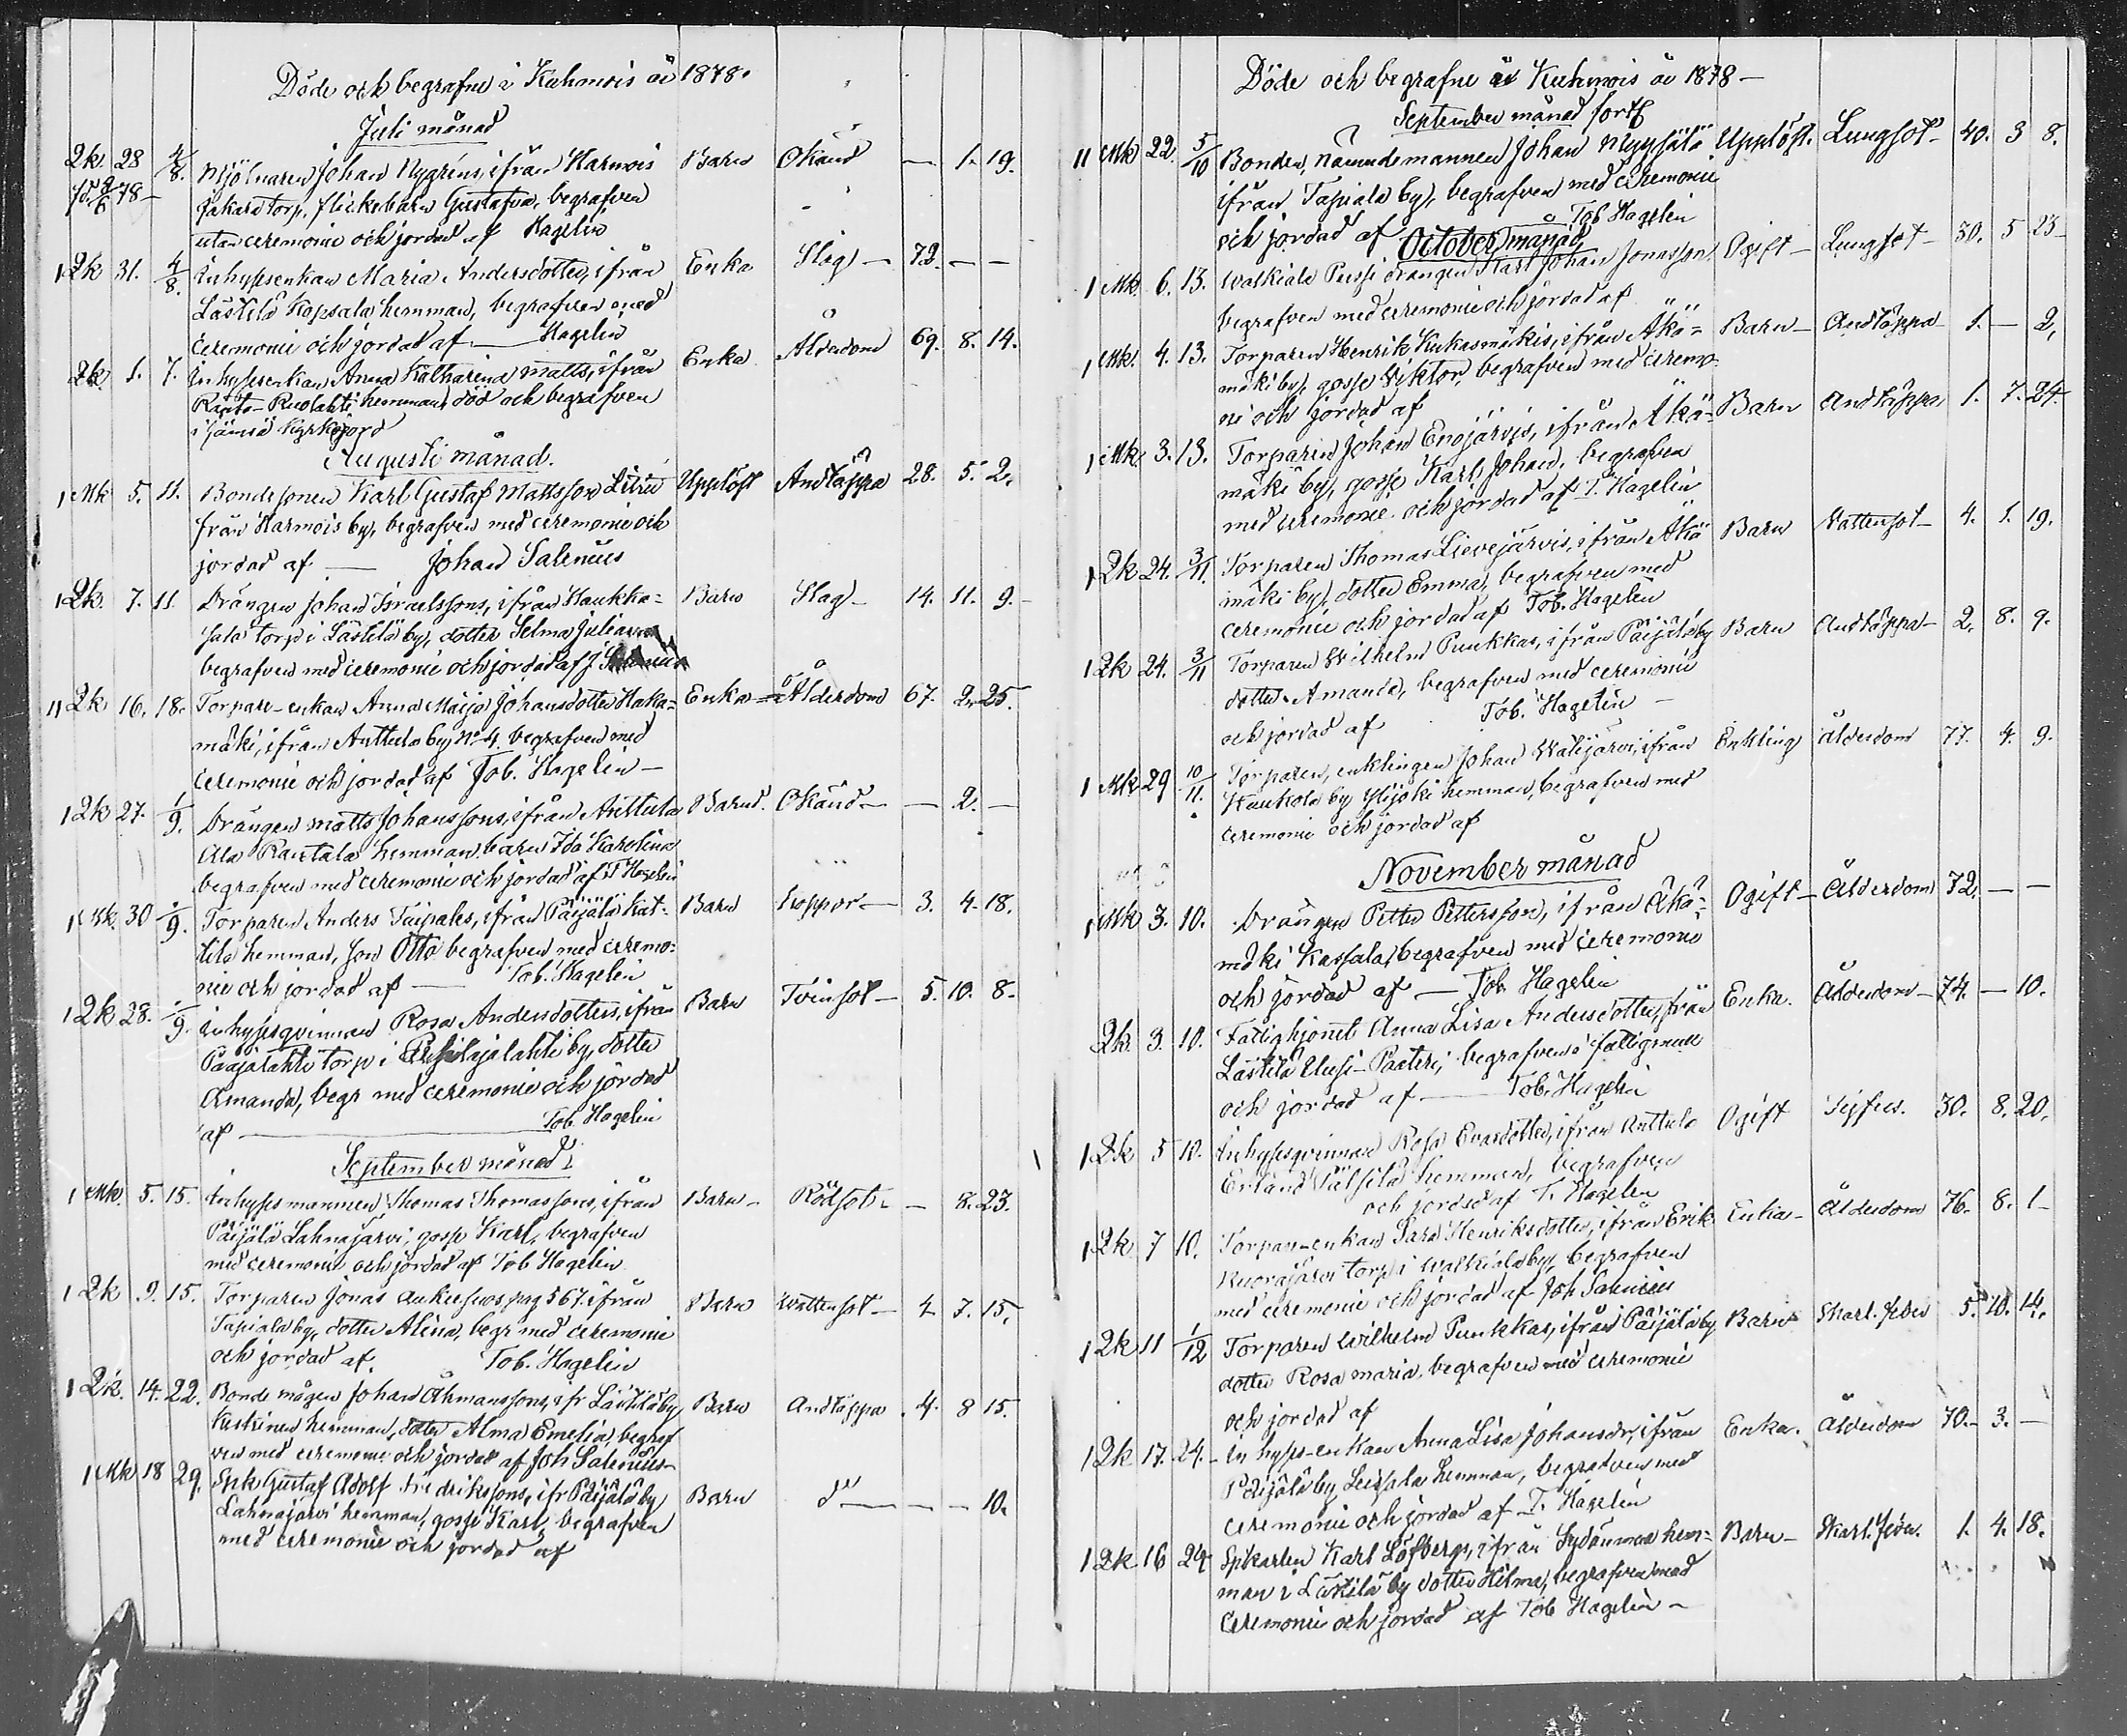 Döde och begrafne i Kuhmois år 1878.
Juli månad
Qk. 28 4/8. Mjölnaren Johan Nygréns, ifrån Harmois Barn Okänd — 1. 19.
78 torp, flickebarn Gustafva, begrafven
utan ceremonie och jordad af Hagelin
1 Qk 31. 4/8. Inhysenkan Maria Andersdotter, ifrån Enka Slag — 72. — —
Lästilä Kopsala hemman, begrafven med
ceremonie och jordad af — Hagelin
Qk 1. 7. Inhysesenkan Anna Katharina Matts, ifrån Enka Ålderdom 69. 8. 14.
hemman, död och begrafven
i Jämsä kyrkojord
Augusti månad.
1 Mk 5. 11. Bondesonen Karl Gustaf Mattsson Upplöst Andtäppa 28. 5. 2.
från Harmois by, begrafven med ceremonie och
jordad af — Johan Salenius
1 Qk. 7. 11. Drängen Johan Israelssons, ifrån Haukka= Barn Slag — 14. 11. 9.
sala torp i Lästilä by, dotter Selma Juliana
begrafven med ceremonie och jordad af J
11 Qk 16. 18. Torpare-enkan Anna Maija Johansdotter Haka= Enka — Ålderdom 67. 2. 25.
mäki, ifrån Anttula by No 4. begrafven med
ceremonie och jordad af Tob. Hagelin —
1 Qk 27. 1/9. Drängen Matts Johanssons, ifrån Anttula Barnd. Okänd — — 2. —
Ala Rautala hemman barn Ida Karolina
begrafven med ceremonie och jordad af T Hagelin
1 Mk. 30 1/9. Torparen Anders Taipales, ifrån Päijälä Kat= Barn Koppor — 3. 4. 18.
tila hemman, son Otto begrafven med ceremo=
nie och jordad af — Tob. Hagelin
1 Qk 28. 1/9. Inhysesqvinnan Rosa Andersdotters, ifrån Barn Tvinsot — 5. 10. 8.
Paajalahti torp i by, dotter
Amanda, begr med ceremonie och jordad
af — Tob. Hagelin
September månad.
1 Mk. 5. 15. Inhyses mannen Thomas Thomassons, ifrån Barn — Rödsot — — 8. 23.
Päijälä Lahnajärvi, gosse Karl, begrafven
med ceremonie och jordad af Tob Hagelin
1 Qk 9. 15. Torparen Jonas pag 567. ifrån Barn Wattensot — 4. 7. 15.
Tapiala by, dotter Alina, begr med ceremonie
och jordad af. Tob. Hagelin
1 Qk. 14. 22. Bonde mågen Johan Åkmanssons, ifr Lästilä by Barn Andtäppa 4. 8 15.
hemman, dotter Alma Emelia, begraf
ven med ceremonie och jordad af Joh Salenius —
1 Mk 18 29. Spk Gustaf Adolf Fredrikssons, ifr Päijälä by Barn do — — — 10.
Lahnajärvi hemman, gosse Karl, begrafven
med ceremonie och jordad af
Döde och begrafne i Kuhmois år 1878 —
September månad forts
11 Mk 22. 5/10 Bonden, Nämndemannen Johan Upplöst. Lungsot — 40. 3 8.
ifrån Tapiala by, begrafven med ceremonie
och jordad af Tob Hagelin
October månad
1 Mk. 6. 13. Walkiala Pussi drängen Karl Johan Jonasson Ogift — Lungsot — 30. 5 23 —
begrafven med ceremonie och jordad af
1 Mk. 4. 13. Torparen Henrik Kukasmäkis, ifrån Äkä= Barn — Andtäppa — 1. — 2.
mäki by, gosse Viktor, begrafven med ceremo
ni och jordad af
1 Mk. 3. 13. Torparen Johan Enojärvis, ifrån Äkä= Barn Andtäppa 1. 7. 24.
mäki by, gosse Karl Johan, begrafven
med ceremonie och jordad af T. Hagelin
1 Qk 24. 3/11. Torparen Thomas Lievejärvis, ifrån Äkä Barn Wattensot — 4. 1. 19.
mäki by, dotter Emma, begrafven med
ceremonie och jordad af Tob. Hagelin
1 Qk 24. 3/11 Torparen Wilhelm Punkkas, ifrån Päijälä by Barn Andtäppa — 2. 8. 9.
dotter Amanda, begrafven med ceremonie
och jordad af Tob. Hagelin —
1 Mk 29 10/11. Torparen, enklingen Johan ifrån Enkling Ålderdom 77. 4. 9.
Kaukola by Ylijoki hemman, begrafven med
ceremonie och jordad af
November månad
1 Mk 3. 10. Drängen Petter Pettersson, ifrån Äkä= Ogift — Ålderdom 72. — —
mäki Kassala, begrafven med ceremonie
och jordad af — Tob. Hagelin
Qk. 3. 10. Fattighjonet Anna Lisa Andersdotter, från Enka. Ålderdom — 74. — 10.
Lästilä begrafven i fattigmull
och jordad af — Tob. Hagelin
1 Qk 5 10. Inhysesqvinnan Rosa Evasdotter, ifrån Anttula Ogift 30. 8. 20.
Erland hemman, begrafven
och jordad af T. Hagelin
1 Qk 7 10. Torpar-enkan Sara Henriksdotter, ifrån Erik Enka — Ålderdom 76. 8. 1 —
Kuorajärvi torp i Walkiala by, begrafven
med ceremonie och jordad af Joh Salenius
1 Qk 11 1/12 Torparen Wilhelm Punkkas, ifrån Päijälä by Barn Skarl. feber 5. 10. 14.
dotter Rosa Maria, begrafven med ceremonie
och jordad af
1 Qk 17. 24. Inhyses-enkan Anna Lisa Johansdr, ifrån Enka. Ålderdom 70. 3. —
Päijälä by, hemman, begrafven med
ceremonie och jordad af T. Hagelin
1 Qk 16 24 Spkarlen Karl Löfbergs, ifrån Sydänmaa hem= Barn — Skarl. feber. 1. 4. 18.
man i Lästilä by dotter Hilma, begrafven med
ceremonie och jordad af Tob Hagelin —